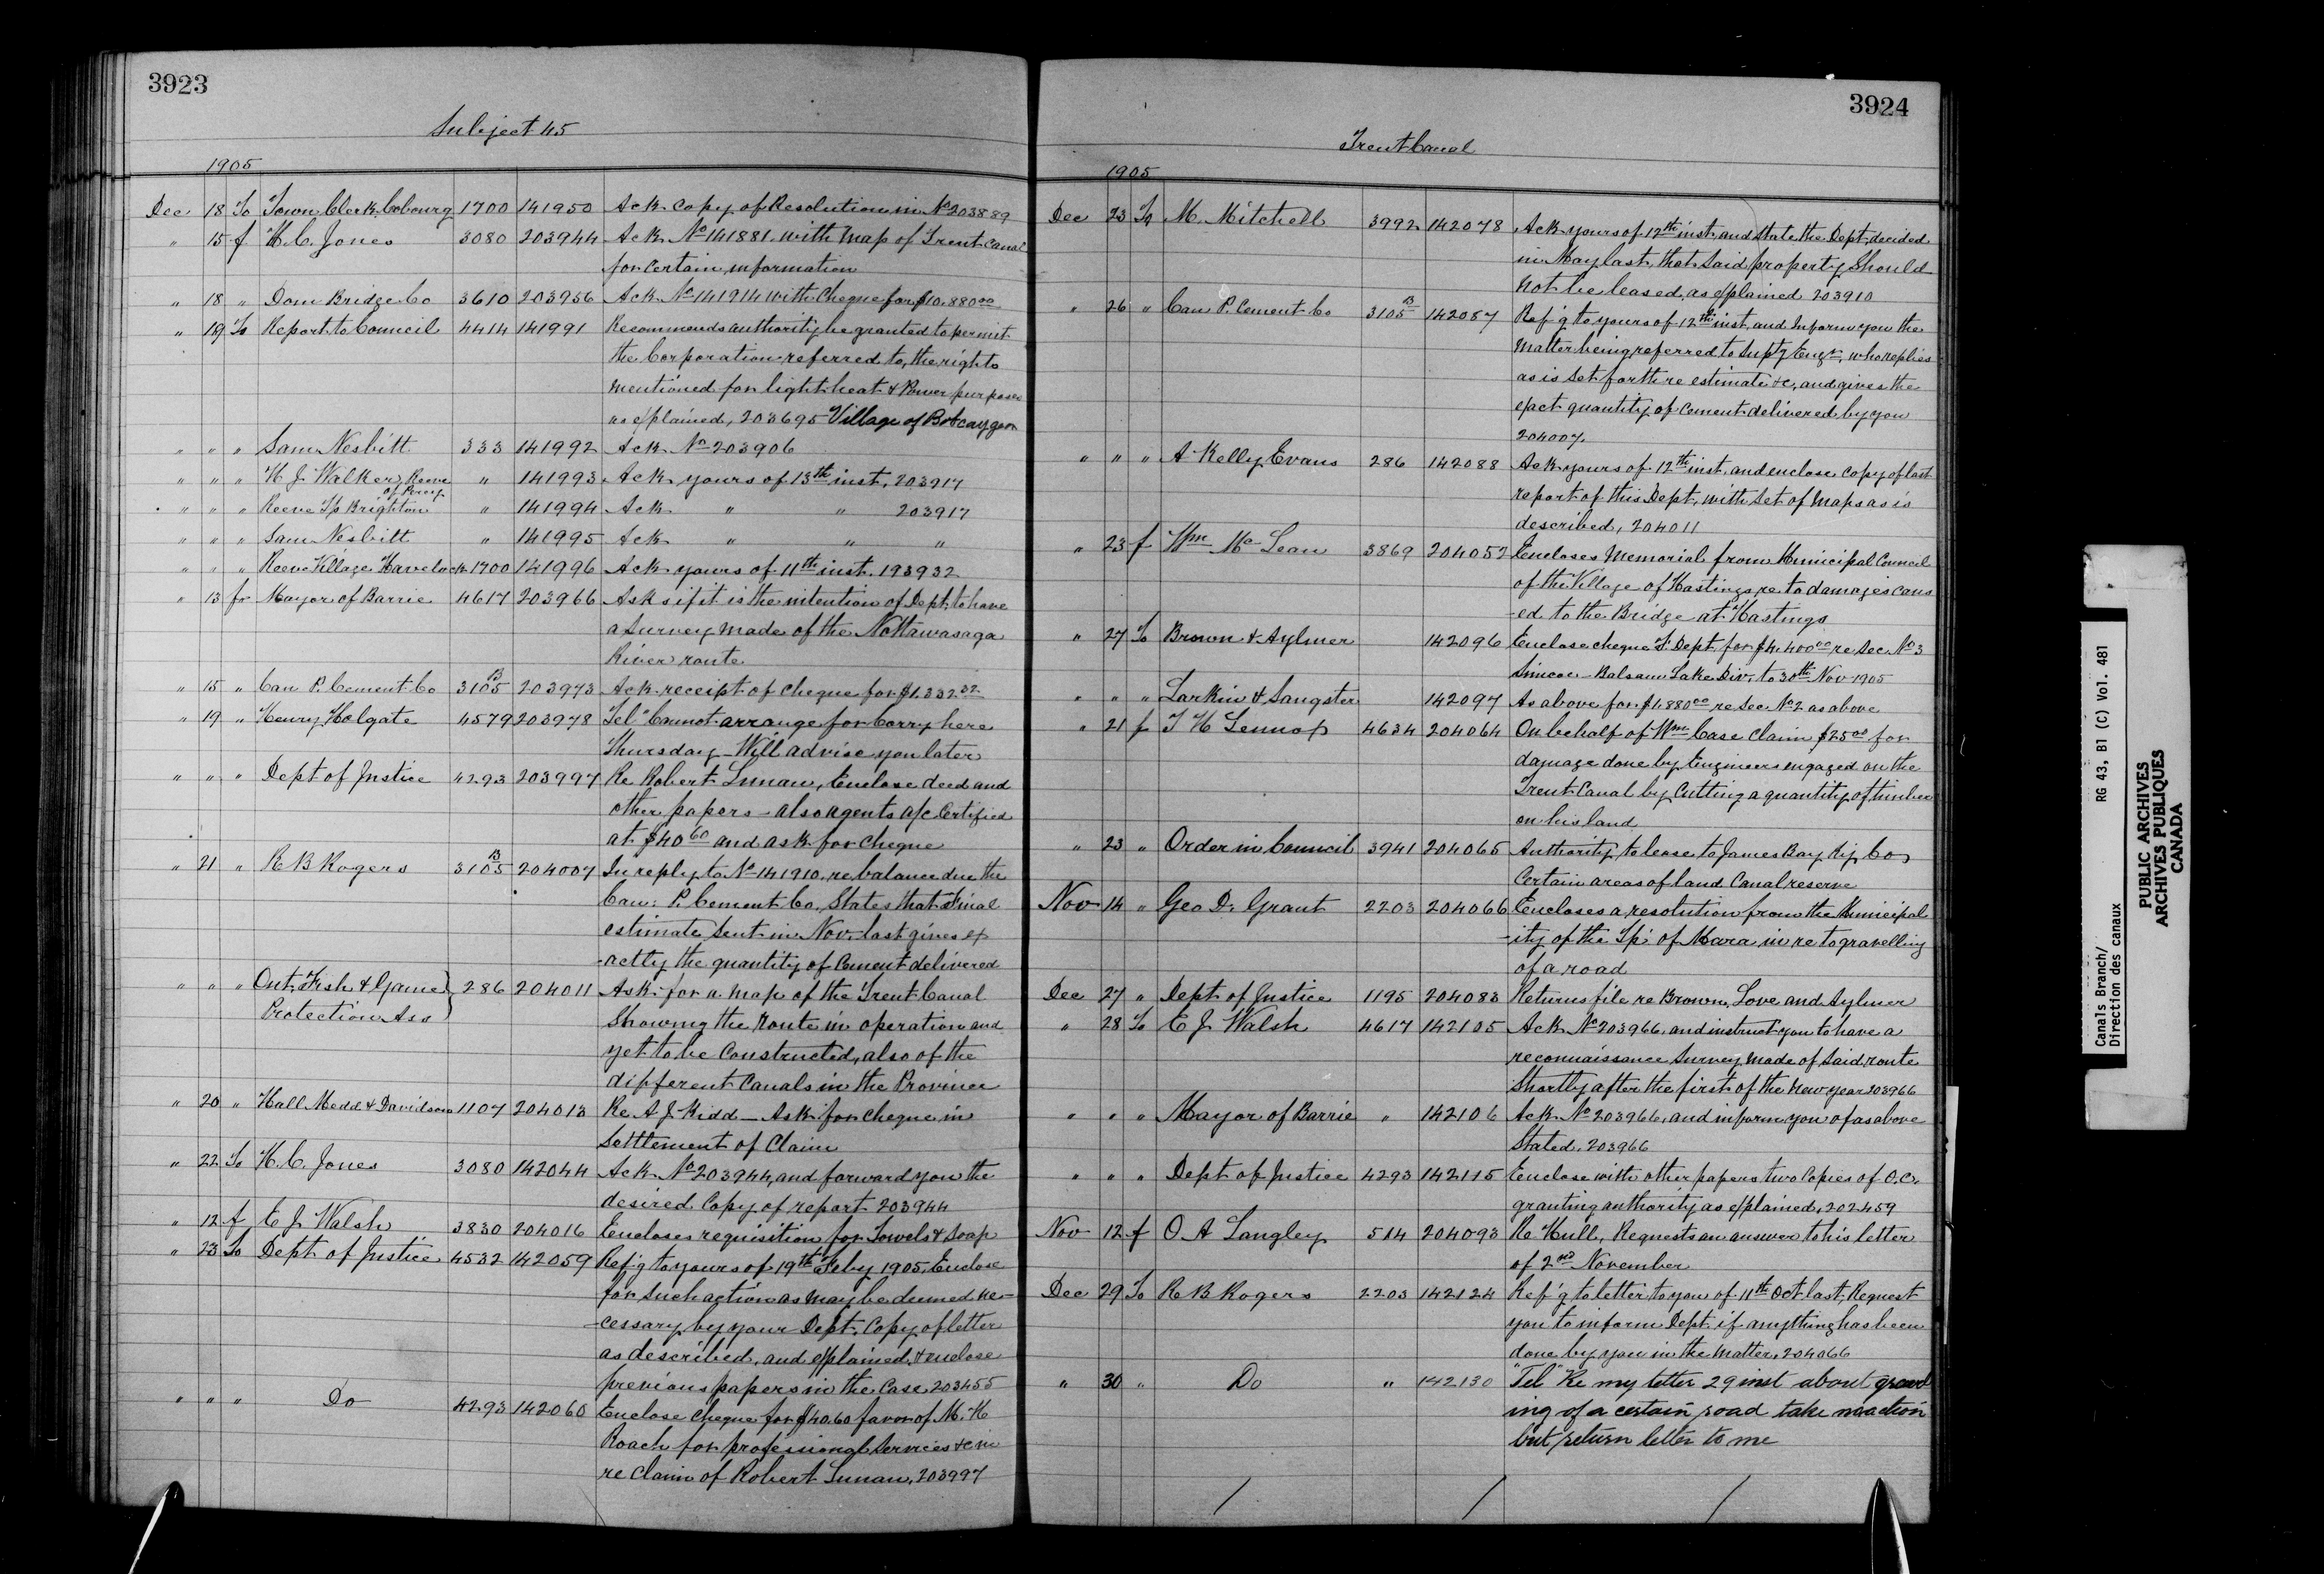 3923
Subject 45
1905
Dec 18 To Town Clerk Cobourg 1700 141950 Ack copy of Resolution in No 203889
" 15 f H. C. Jones 3080 203944 Ack No 141881 with Map of Trent Canal
for certain information
" 18 " Dom Bridge Co 3610 203956 Ack No 141914 with Cheque for $10.880 00
" 19 To Report to Council 4414 141991 Recommends authority be granted to permit
the Corporation referred to, the rights
mentioned for light heat & Power purposes
as explained, 203695 Village of Bobcaygeon
" " " Sam Nesbitt 333 141992 Ack No 203906
" " " H J Walker, Reeve of Percy " 141993 Ack yours of 13th inst. 203917
" " " Reeve Tp Brighton " 141994 Ack " " 203917
" " " Sam Nesbitt " 141995 Ack " " "
" " " Reeve Village Havelock 1700 141996 Ack yours of 11th inst. 193932
" 13 fr Mayor of Barrie 4617 203966 Asks if it is the intention of Dept. to have
a survey made of the Nottawasaga
River route
" 15 " Can P. Cement Co 3105 B 203973 Ack receipt of cheque for $1.332 32
" 19 " Henry Holgate 4579 203978 Tel "Cannot arrange for Corry here
Thursday – Will advise you later
" " " Dept of Justice 4293 203997 Re Robert Lunan, Enclose deed and
other papers – also agents a/c Certified
at $40 60 and ask for cheque
" 21 " R B Rogers 3105 B 204007 In reply to No 141910. re balance due the
Can. P. Cement Co. States that Final
estimate sent in Nov. last gives ex
-actly the quantity of Cement delivered
" " " Ont. Fish & Game 286 204011 Ask for a map of the Trent Canal
Protection Ass showing the Route in operation and
yet to be Constructed, also of the
different Canals in the Province
" 20 " Hall Medd & Davidson 1107 204013 Re A J Kidd – Ask for cheque in
Settlement of Claim
" 22 To H. C. Jones 3080 142044 Ack No 203944, and forward you the
desired Copy of report 203944
" 12 f E J Walsh 3830 204016 Encloses requisition for Towels & Soap
" 23 To Dept of Justice 4532 142059 Ref'g to yours of 19th Feby 1905, Enclose
for such action as may be deemed ne-
-cessary by your Dept. Copy of letter
as described, and explained, & enclose
previous papers in the Case 203455
" " " Do 4293 142060 Enclose cheque for $40.60 favor of M. K
Roach for professional Services &c in
re Claim of Robert Lunan, 203997
3924
Trent Canal
1905
Dec 23 To M. Mitchell 3992 142078 Ack yours of 12th inst. and state the Dept. decided
in May last, that said property should
not be leased, as explained 203910
" 26 " Can P. Cement Co 3105 B 142087 Ref'g to yours of 12th inst, and Inform you the
Matter being referred to Supt'g Engr. who replies
as is set forth re estimate &c, and gives the
exact quantity of Cement delivered by you
204007.
" " " A Kelly Evans 286 142088 Ack yours of 12th inst. and enclose copy of last
report of this Dept. with set of Maps as is
described, 204011
" 23 f Wm McLean 3869 204052 Encloses Memorial from Municipal Council
of the Village of Hastings re to damages caus
-ed to the Bridge at Hastings
" 27 To Brown & Aylmer 142096 Enclose cheque F. Dept. for $4.400 00 re Sec. No 3
Simcoe – Balsam Lake Div. to 30th Nov 1905
" " " Larkin & Sangster 142097 As above for $1.880 00 re Sec. No 2 as above
" 21 f T H Lennox 4634 204064 On behalf of Wm Case claim $25 00 for
damage done by Engineers engaged on the
Trent Canal by Cutting a quantity of timber
on his land
" 23 " Order in Council 3941 204065 Authority to lease to James Bay Ry Co
Certain areas of land Canal reserve
Nov 14 " Geo D. Grant 2203 204066 Encloses a resolution from the Municipal
-ity of the Tp. of Mara in re to gravelling
of a road
Dec 27 " Dept of Justice 1195 204083 Returns file re Brown, Love and Aylmer
" 28 To E J Walsh 4617 142105 Ack No 203966, and instruct you to have a
reconnaissance Survey made of said route
Shortly after the first of the New year 203966
" " " Mayor of Barrie " 142106 Ack No 203966, and inform you of as above
Stated. 203966
" " " Dept of Justice 4293 142115 Enclose with other papers two Copies of O.C.
granting authority as explained, 202459
Nov 12 f O A Langley 514 204093 Re Hull, Requests an answer to his letter
of 2nd November
Dec 29 To R B Rogers 2203 142124 Ref'g to letter to you of 11th Oct. last, Request
you to inform Dept. if anything has been
done by you in the Matter, 204066
" 30 " Do " 142130 "Tel" Re my letter 29 inst about gravel
ing of a certain road take no action
but return letter to me
Canals Branch/
Direction des canaux
RG 43, B1 (C) Vol. 481
PUBLIC ARCHIVES
ARCHIVES PUBLIQUES
CANADA